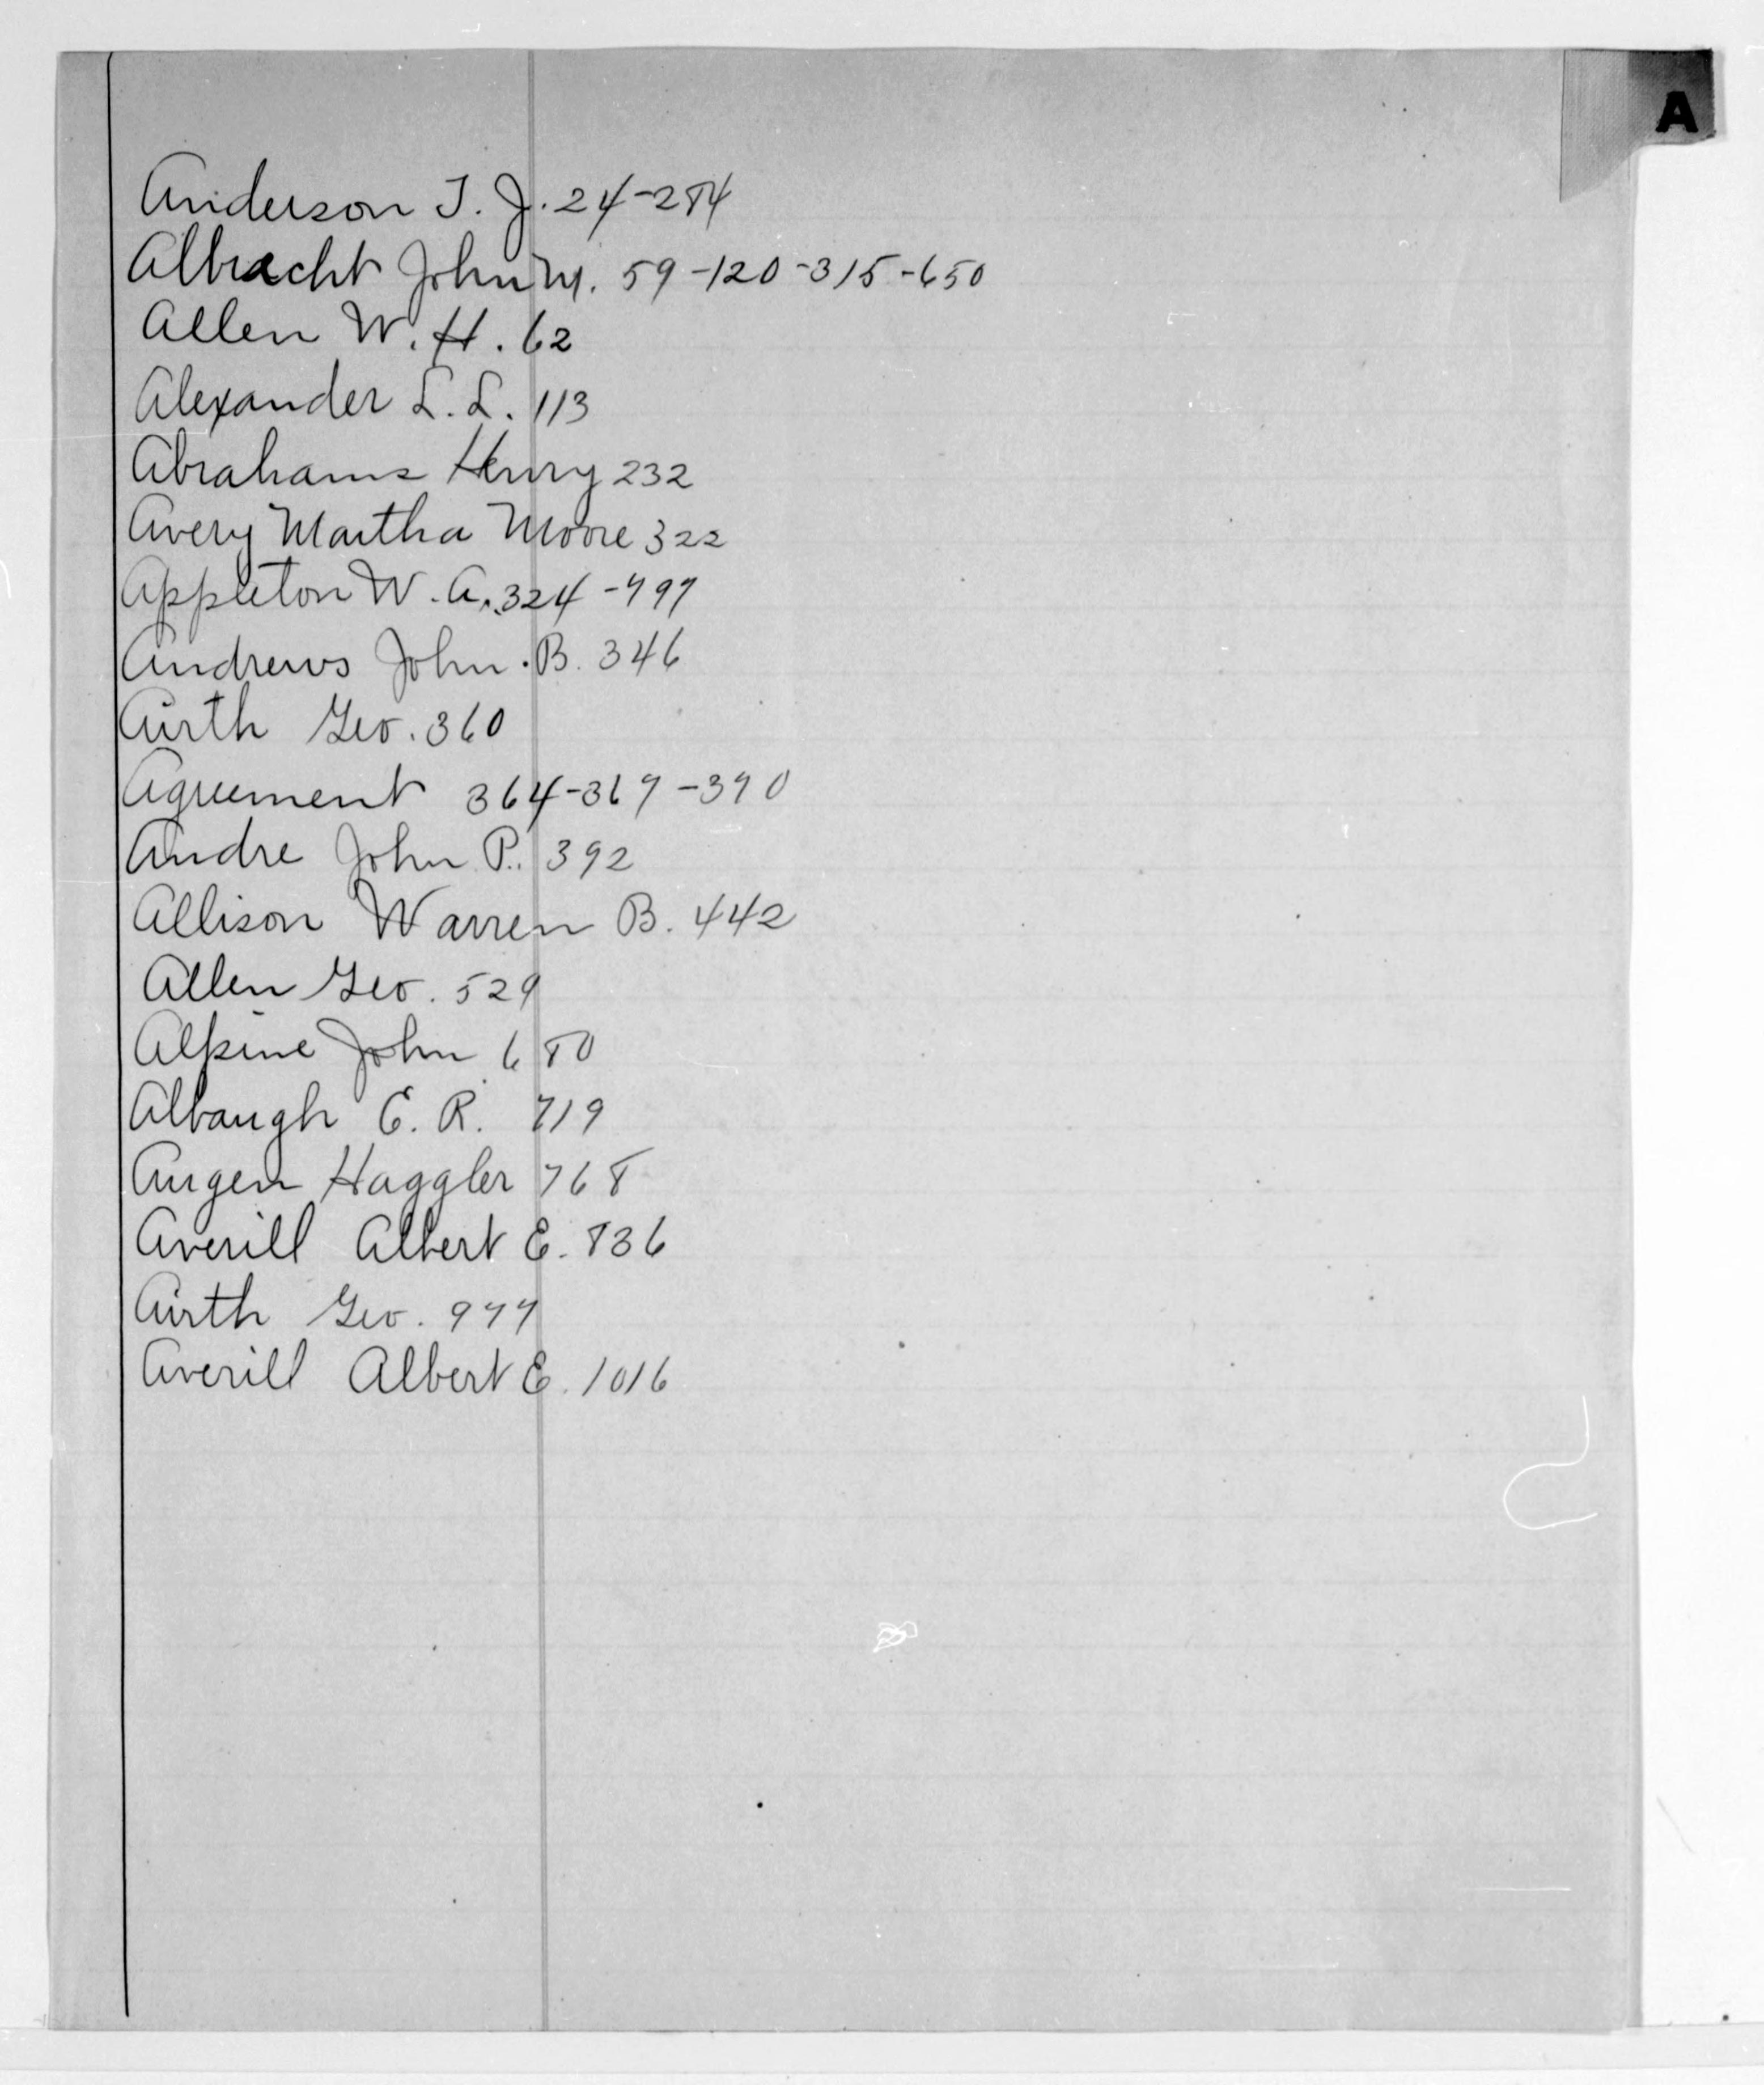 A
Anderson T. J. 24-284
Albracht John M. 59-120-315-650
Allen W. H. 62
Alexander L. L. 113
Abrahams Henry 232
Avery Martha Moore 322
Appleton W. A. 324-797
Andrews John B. 346
Airth Geo. 360
Agreement 364-367-370
Andre John P. 392
Allison Warren B. 442
Allen Geo. 529
Alpine John 680
Albaugh E. R. 719
Augen Haggler 768
Averill Albert E. 836
Airth Geo. 977
Averill Albert E. 1016